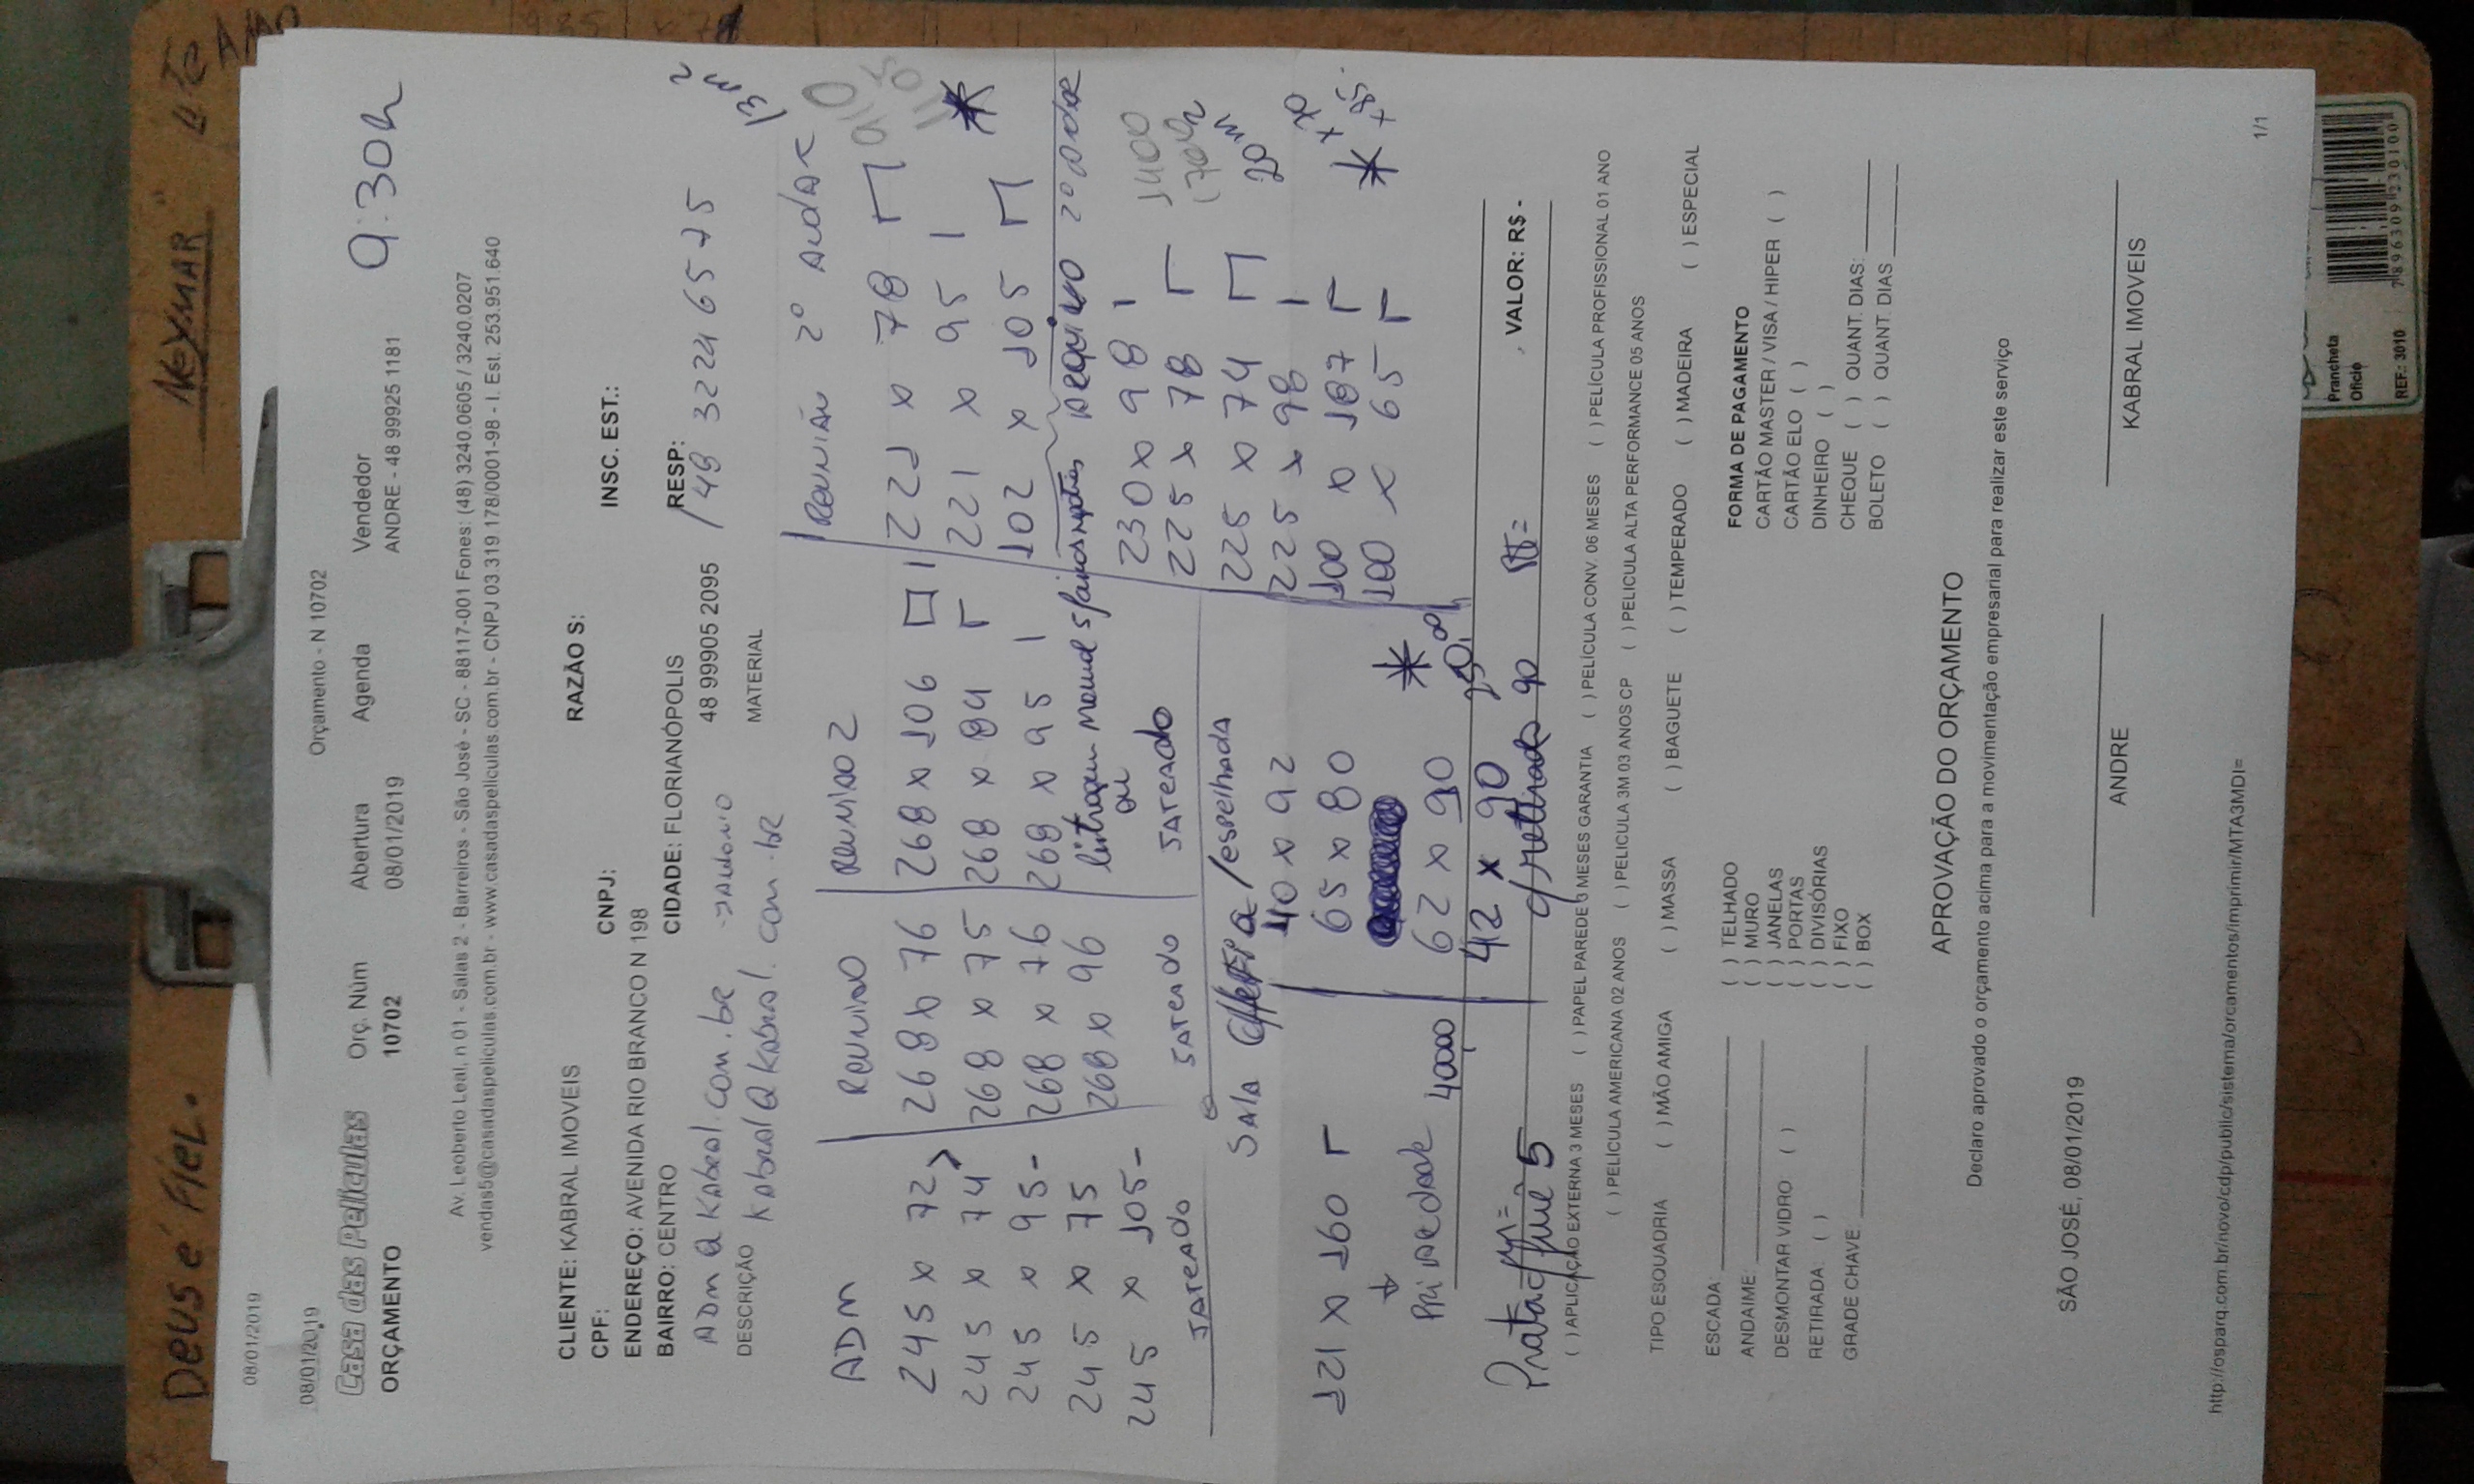 Deus é Fiel.
Neymar
08/01/2019
08/01/2019
Orçamento - N 10702
Casa das Películas
ORÇAMENTO
Orç. Núm
10702
Abertura
08/01/2019
Agenda
Vendedor
ANDRE - 48 99925 1181
9:30h
Av. Leoberto Leal, n 01 - Salas 2 - Barreiros - São José - SC - 88117-001 Fones: (48) 3240.0605 / 3240.0207
vendas5@casadaspeliculas.com.br - www.casadaspeliculas.com.br - CNPJ 03.319.178/0001-98 - I. Est. 253.951.640
CLIENTE: KABRAL IMOVEIS
RAZÃO S:
CPF:
CNPJ:
INSC. EST.:
ENDEREÇO: AVENIDA RIO BRANCO N 198
BAIRRO: CENTRO
CIDADE: FLORIANÓPOLIS
RESP:
48 99905 2095 / 48 3224 6575
ADM @ Kabral.com.br → Antonio
DESCRIÇÃO
Kabral @ Kabral.com.br
MATERIAL
13 m2
ADM
245 x 72
245 x 74
245 x 95 -
245 x 75
245 x 105 -
Jateado
Reunião
268 x 76
268 x 75
268 x 76
268 x 96
Jateado
Reunião 2
268 x 106
268 x 84
268 x 95
ou
Jateado
Reunião 2º Andar
221 x 78
221 x 95
102 x 105
910
1150
pequeno 2º andar
230 x 98
225 x 78
225 x 74
225 x 98
100 x 187
100 x 65
1400
20 m2
+ 70
+ 85
Sala /espelhada
121 x 160
Privacidade
40 x 92
65 x 80
62 x 90
42 x 90
c/ retirada 90
Prata
fumê 5
, VALOR: R$ -
( ) APLICAÇÃO EXTERNA 3 MESES ( ) PAPEL PAREDE 3 MESES GARANTIA ( ) PELÍCULA CONV. 06 MESES ( ) PELÍCULA PROFISSIONAL 01 ANO
( ) PELÍCULA AMERICANA 02 ANOS ( ) PELICULA 3M 03 ANOS CP ( ) PELICULA ALTA PERFORMANCE 05 ANOS
TIPO ESQUADRIA ( ) MÃO AMIGA ( ) MASSA ( ) BAGUETE ( ) TEMPERADO ( ) MADEIRA ( ) ESPECIAL
ESCADA:
ANDAIME:
DESMONTAR VIDRO ( )
RETIRADA: ( )
GRADE CHAVE
( ) TELHADO
( ) MURO
( ) JANELAS
( ) PORTAS
( ) DIVISÓRIAS
( ) FIXO
( ) BOX
FORMA DE PAGAMENTO
CARTÃO MASTER / VISA / HIPER ( )
CARTÃO ELO ( )
DINHEIRO ( )
CHEQUE ( ) QUANT. DIAS:
BOLETO ( ) QUANT. DIAS
APROVAÇÃO DO ORÇAMENTO
Declaro aprovado o orçamento acima para a movimentação empresarial para realizar este serviço
SÃO JOSÉ, 08/01/2019
ANDRE
KABRAL IMOVEIS
http://osparq.com.br/novo/cdp/public/sistema/orcamentos/imprimir/MTA3MDI=
1/1
Prancheta
Oficio
REF.: 3010
7896309230100